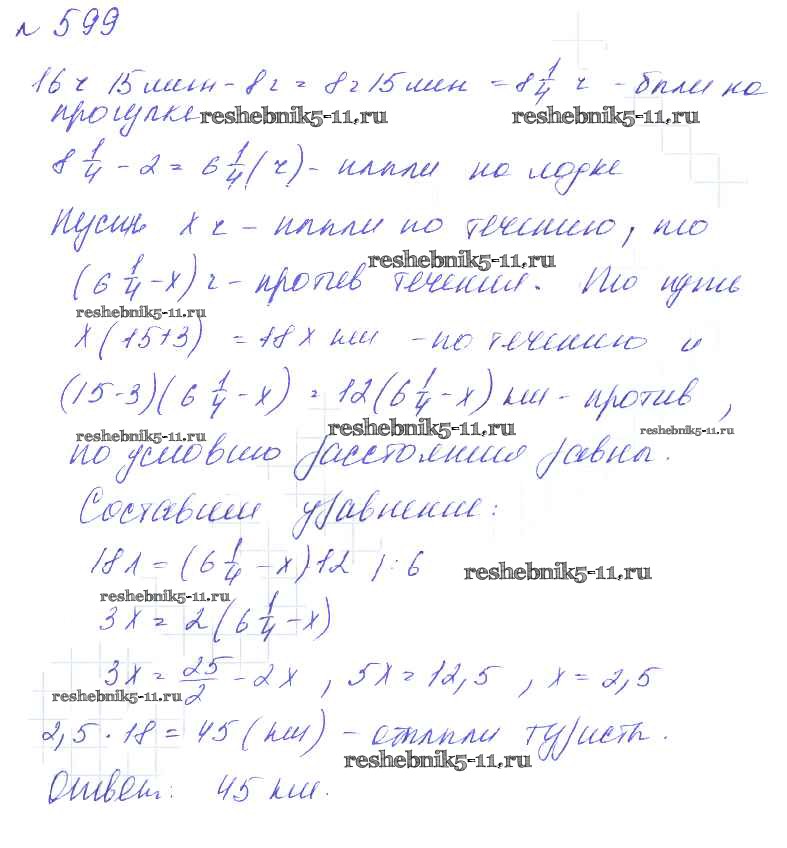 № 599
16 ч 15 мин - 8 ч = 8 ч 15 мин = 8 1/4 ч - были на
прогулке reshebnik5-11.ru reshebnik5-11.ru
8 1/4 - 2 = 6 1/4 (ч) - плыли на лодке
Пусть x ч - плыли по течению, то
reshebnik5-11.ru
(6 1/4 - x) ч - против течения. То путь
reshebnik5-11.ru
x (15+3) = 18x км - по течению и
(15-3)(6 1/4 - x) = 12(6 1/4 - x) км - против,
reshebnik5-11.ru reshebnik5-11.ru reshebnik5-11.ru
по условию расстояния равны.
Составим уравнение:
18x = (6 1/4 - x)12 | : 6 reshebnik5-11.ru
reshebnik5-11.ru
3x = 2(6 1/4 - x)
3x = 25/2 - 2x, 5x = 12,5, x = 2,5
reshebnik5-11.ru
2,5 · 18 = 45 (км) - отплыли туристы.
reshebnik5-11.ru
Ответ: 45 км.